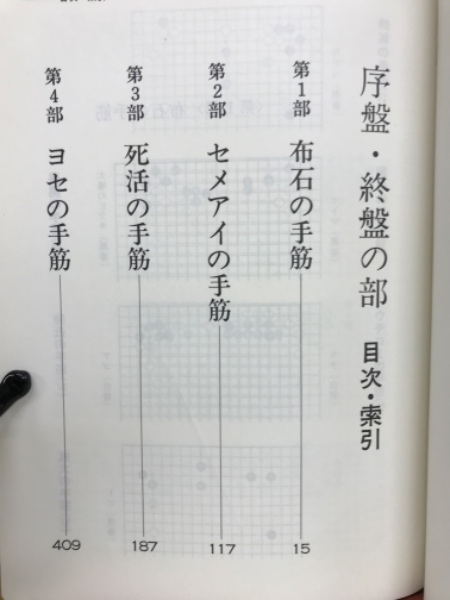 序盤・終盤の部 目次・索引
第1部 布石の手筋 15
第2部 セメアイの手筋 117
第3部 死活の手筋 187
第4部 ヨセの手筋 409